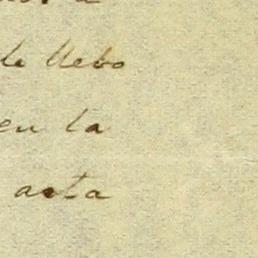 de llebo
en la
acta